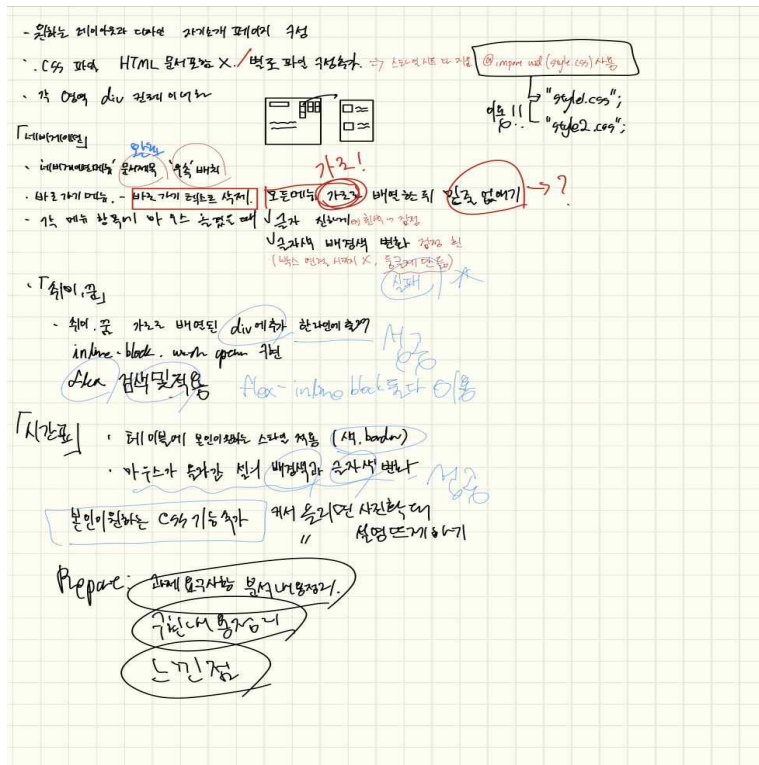 - 원하는 레이아웃과 디자인 자기소개 페이지 구성
· .css 파일 HTML 문서포함 X. / 별도 파일 구성추가. => 스타일시트 다 지움
@import url (style.css) 사용
이용!! "style1.css";
"style2.css";
· 각 영역 div 컨테이너로
「네비게이션」
완료
· '네비게이션메뉴' 문서제목 '우측' 배치
가로!
· 바로가기 메뉴. - 바로가기 텍스트 삭제. 모든메뉴 가로로 배열한 뒤 밑줄 없애기 → ?
- 각 메뉴 항목에 마우스 올렸을 때 √ 글자 진하게
√ 글자색 배경색 변화 검정 흰
(박스 X, 둥글게 만듦)
실패
· 「취미, 꿈」
· 취미. 꿈 가로로 배열된 div에 추가 한라인에
inline-block. 구현
성공
flex 검색 및 적용 flex - inline block 둘다 이용
「시간표」 · 테이블에 본인이 원하는 스타일 적용 (색, border)
· 마우스가 올라갈 시 배경색과 글자색 변화 성공
본인이 원하는 CSS 기능추가 커서 올리면 사진확대
" 설명뜨게하기
Repore: 과제 요구사항 분석 내용정리.
구현내용정리
느낀점